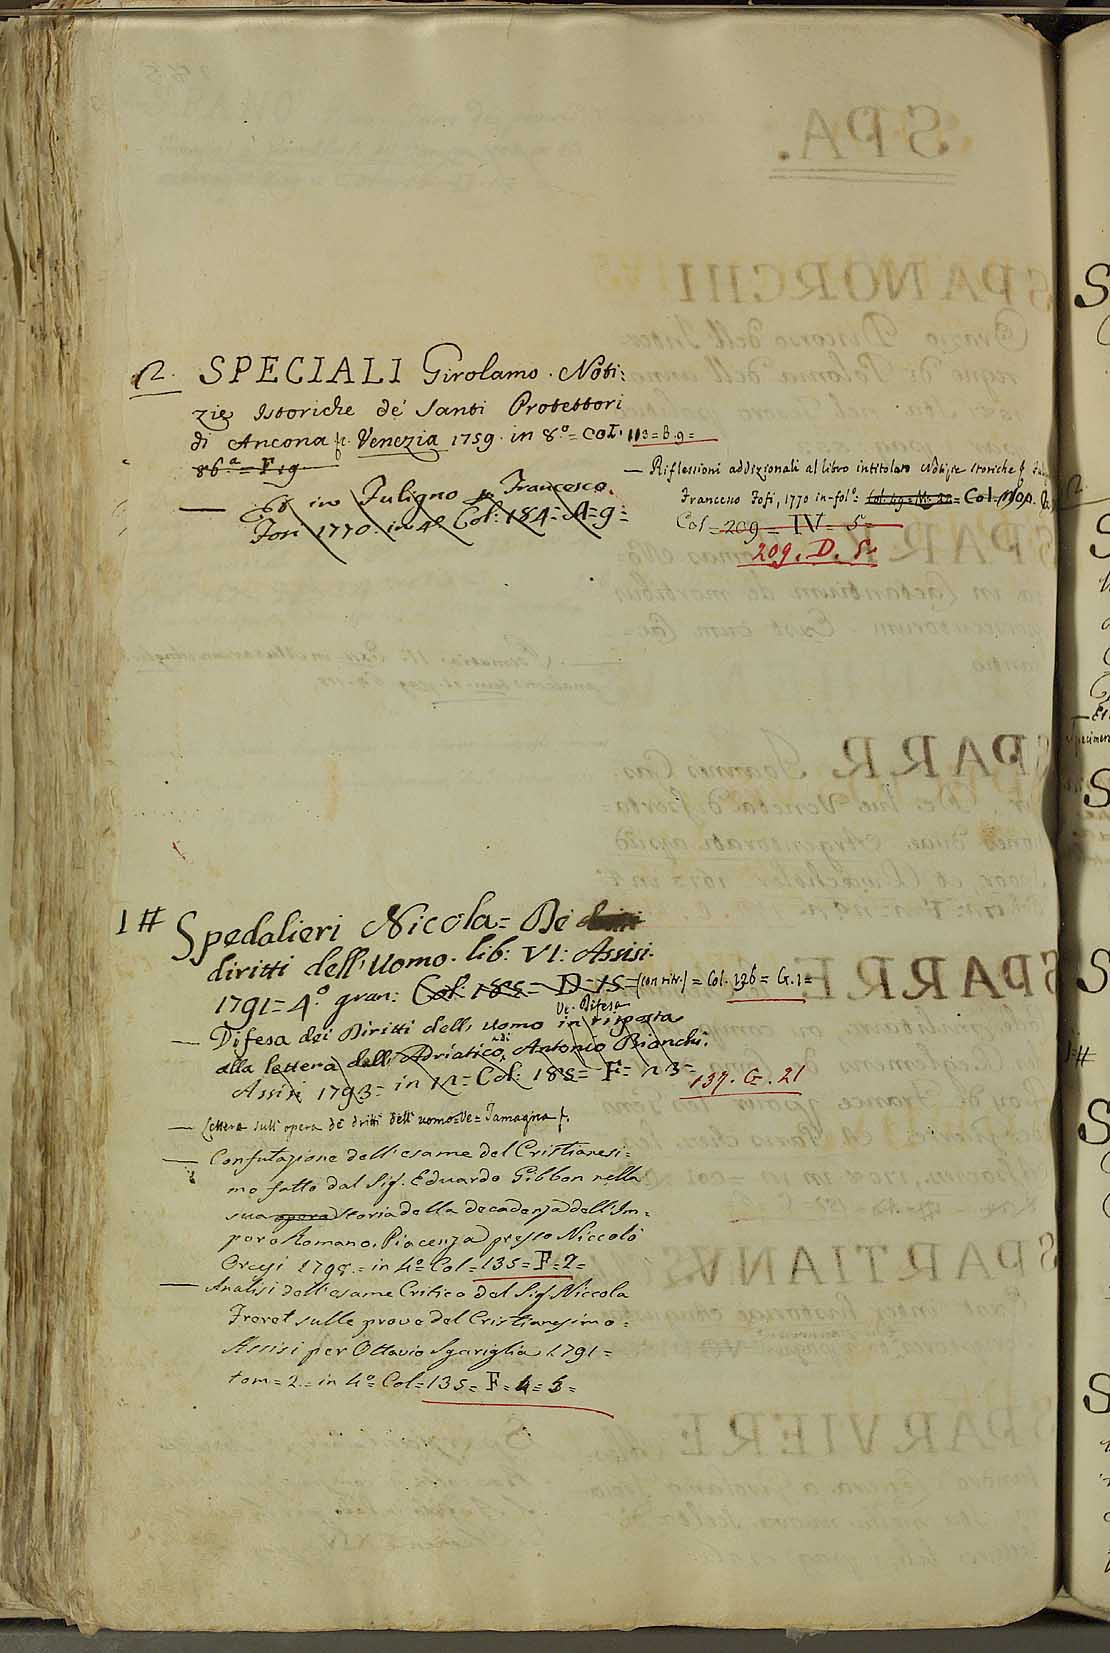 2. SPECIALI Girolamo. Noti:
zie Istoriche de' Santi Protettori
di Ancona fc. Venezia 1759. in 8.º = Col. 113 = B. 9 =
86.ª = F 19
— Et in Fuligno p Francesco
Fofi 1770. in 4º Col: 184 = A = 9 =
— Riflessioni addizionali al libro intitolato Notizie storiche f.
Francesco Fofi, 1770 in-folº = Col. Mop.
Col = 209 = IV = 5 =
209. D. 5.
1 # Spedalieri Nicola = De
diritti dell'Uomo. lib: VI: Assisi.
1791 = 4º gran: Col. 185 = D = 15 = (con ritr.) = Col. 136 = G. 1 =
Ve. Difesa
— Difesa dei Diritti dell'uomo in risposta
alla lettera dell'Adriatico, di Antonio Bianchi.
Assisi 1793 = in 12 = Col. 185 = F = 23 = 137. G. 21
— Lettera sull'opera de dritti dell'uomo = Ve = Tamagna f.
— Confutazione dell'esame del Cristianesi:
mo fatto dal Sig. Eduardo Gibbon nella
sua opera Storia della decadenza dell'Im =
pero Romano. Piacenza presso Niccolò
Orcesi 1798. = in 4º Col = 135 = F = 2 =
— Analisi dell'esame Critico del Sig. Niccola
Freret sulle prove del Cristianesimo =
Assisi per Ottavio Sgariglia 1791 =
tom = 2 = in 4º = Col = 135 = F = 4 = 5 =